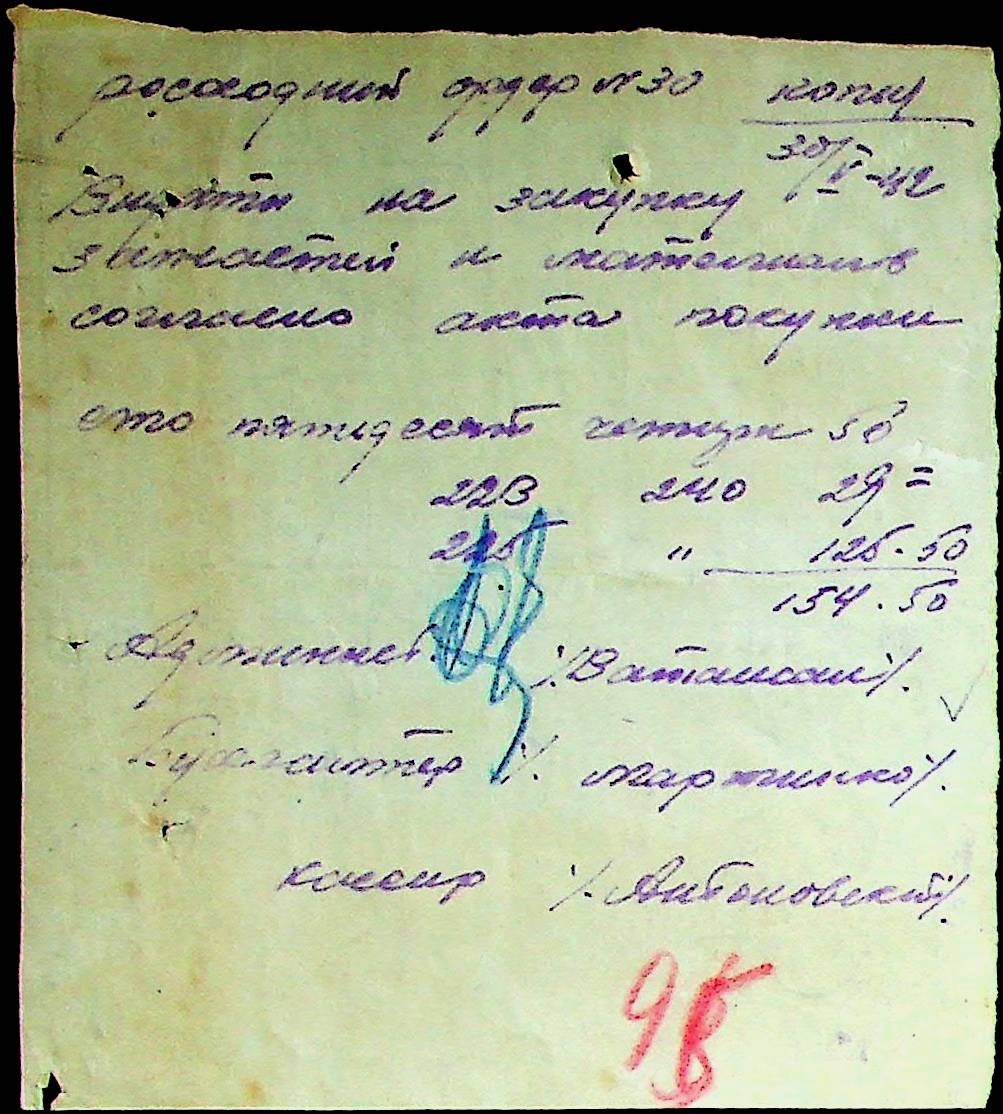 расходный ордер №30 копия
30/V-42
Выдати на закупку
запчастей и материалов
согласно акта покупки
сто пятдесят четири 50
223 240 29=
225 " 125.50
154.50
Админист. /.Ватансам/.
Бухгалтер /. Мартинко/.
кассир /.Антоновский/.